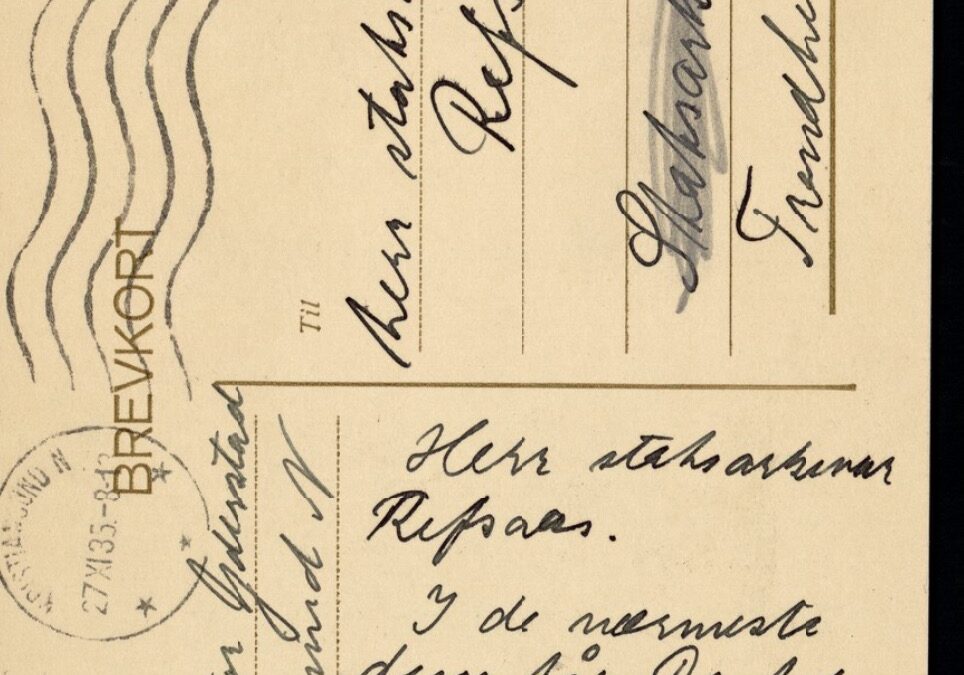 BREVKORT
KRISTIANSUND N
27 XI 35.-8-
Til
Herr stats
Refs
Statsark
Trondhe
Gderstad
sund N
Herr statsarkivar
Refsaas.
I de nærmeste
får De